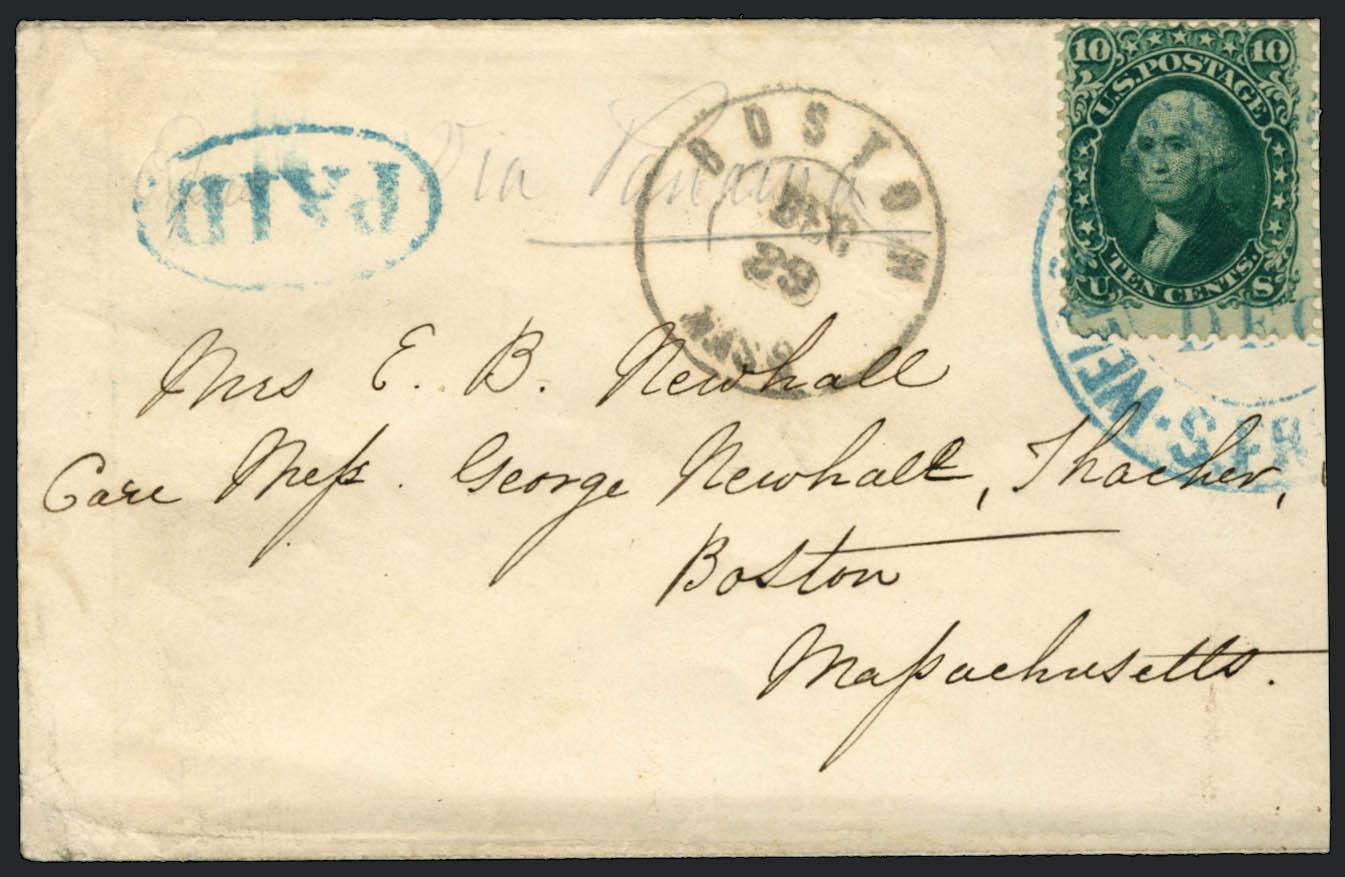 10 10
U.S. POSTAGE
TEN CENTS.
U S
PAID
Via Panama
BOSTON
DEC
29
MASS
DEC
WEL
Mrs E. B. Newhall
Care Meſs. George Newhall, Thacher,
Boston
Maſsachusetts.